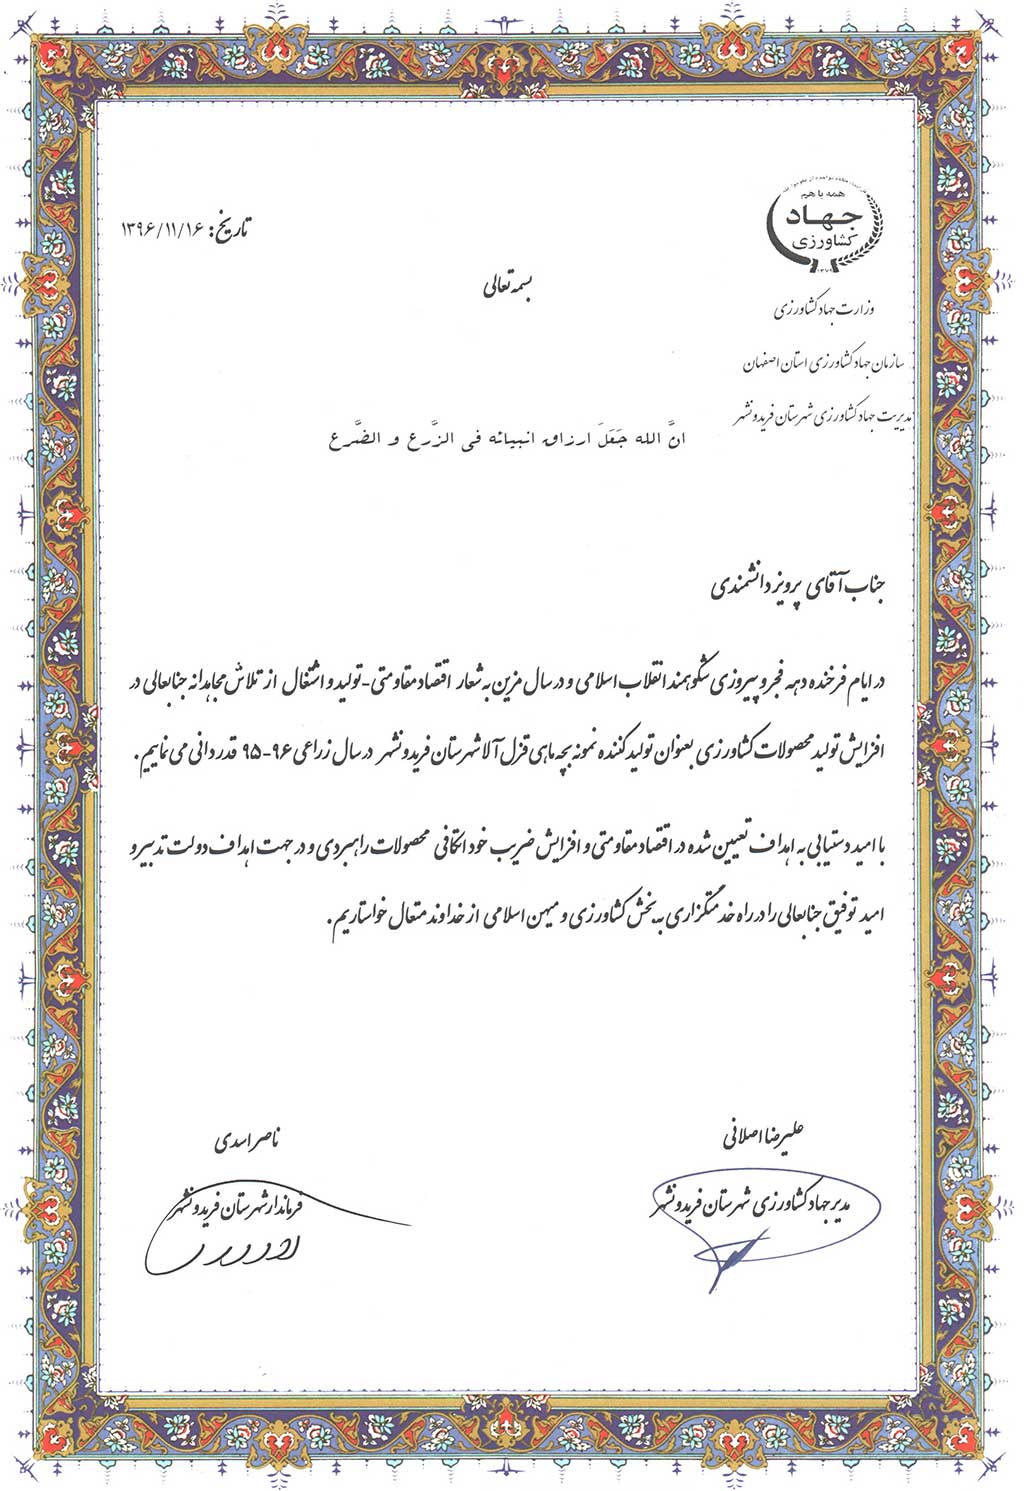 همه با هم
جهاد
کشاورزی
تاریخ: ۱۳۹۶/۱۱/۱۶
بسمه تعالی
وزارت جهاد کشاورزی
سازمان جهاد کشاورزی استان اصفهان
مدیریت جهاد کشاورزی شهرستان فریدونشهر
انَّ الله جَعَلَ ارزاق انبیائه فی الزَّرع و الضَّرع
جناب آقای پرویز دانشمندی
در ایام فرخنده دهه فجر و پیروزی شکوهمند انقلاب اسلامی و در سال مزین به شعار اقتصاد مقاومتی-تولید و اشتغال از تلاش مجاهدانه جنابعالی در
افزایش تولید محصولات کشاورزی بعنوان تولید کننده نمونه بچه ماهی قزل آلا شهرستان فریدونشهر در سال زراعی ۹۶-۹۵ قدردانی می نماییم.
با امید دستیابی به اهداف تعیین شده در اقتصاد مقاومتی و افزایش ضریب خود اتکافی محصولات راهبردی و در جهت اهداف دولت تدبیر و
امید توفیق جنابعالی را در راه خدمتگزاری به بخش کشاورزی و میهن اسلامی از خداوند متعال خواستاریم.
علیرضا اصلانی
مدیر جهاد کشاورزی شهرستان فریدونشهر
ناصر اسدی
فرماندار شهرستان فریدونشهر